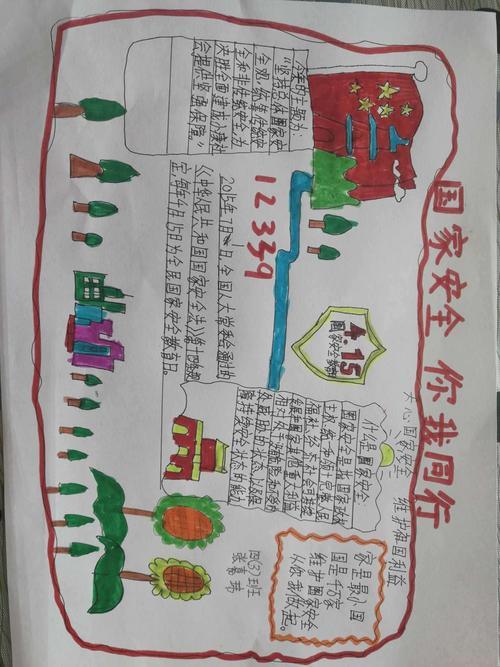 国家安全 你我同行
关心国家安全 维护国利益
今年的主题为:
“坚持总体国家安
全观,统筹传统安
全和非传统安全为
决胜全面建成小康社
会提供坚强保障”
12339
2015年7月1日,全国人大常委会通过的
《中华人民共和国国家安全法》第十四条规
定,每年4月15日为全民国家安全教育日。
4.15
国家安全教育日
什么是国家安全:
国家安全是指国家政权
主权、统一和领土完整、人民
福祉、经济社会可持续
发展和国家其他重大利益
相对处于没有危险和不受内
外威胁的状态,以及保障
持续安全状态的能力
家是最小国
国是千万家
维护国家安全
从你我做起。
四(3)班